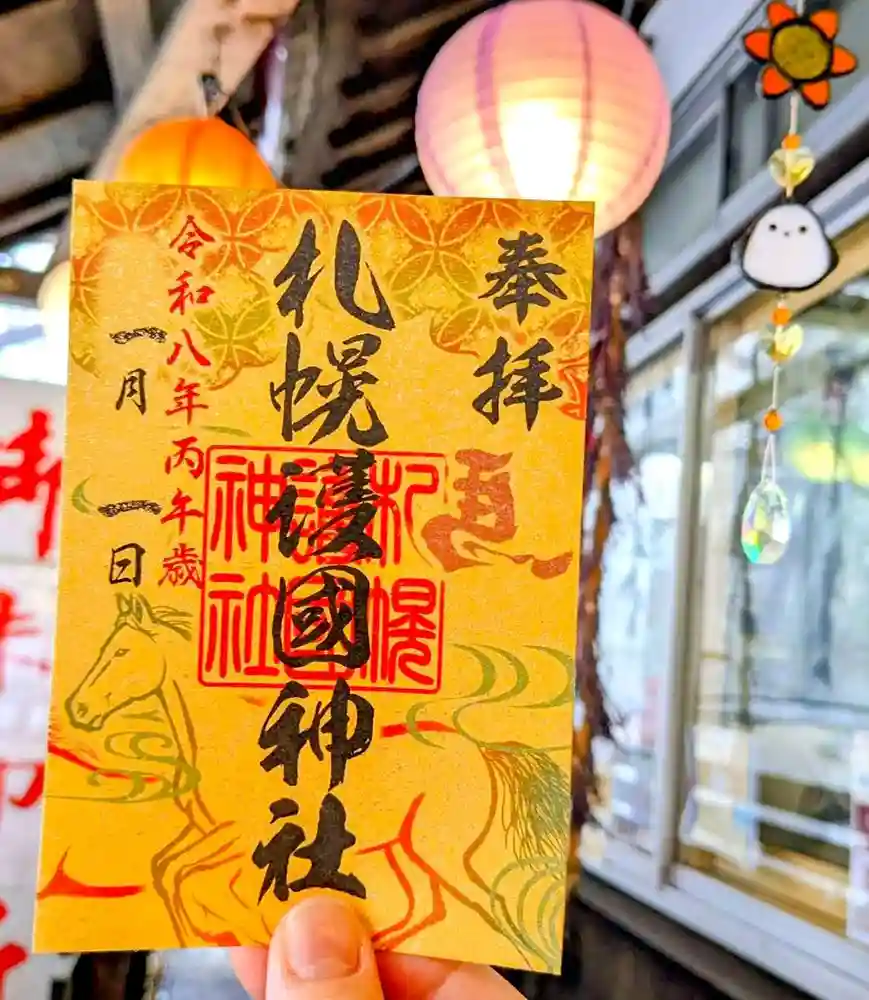 奉拝
札幌護國神社
札幌
護国
神社
令和八年丙午歳
一月一日